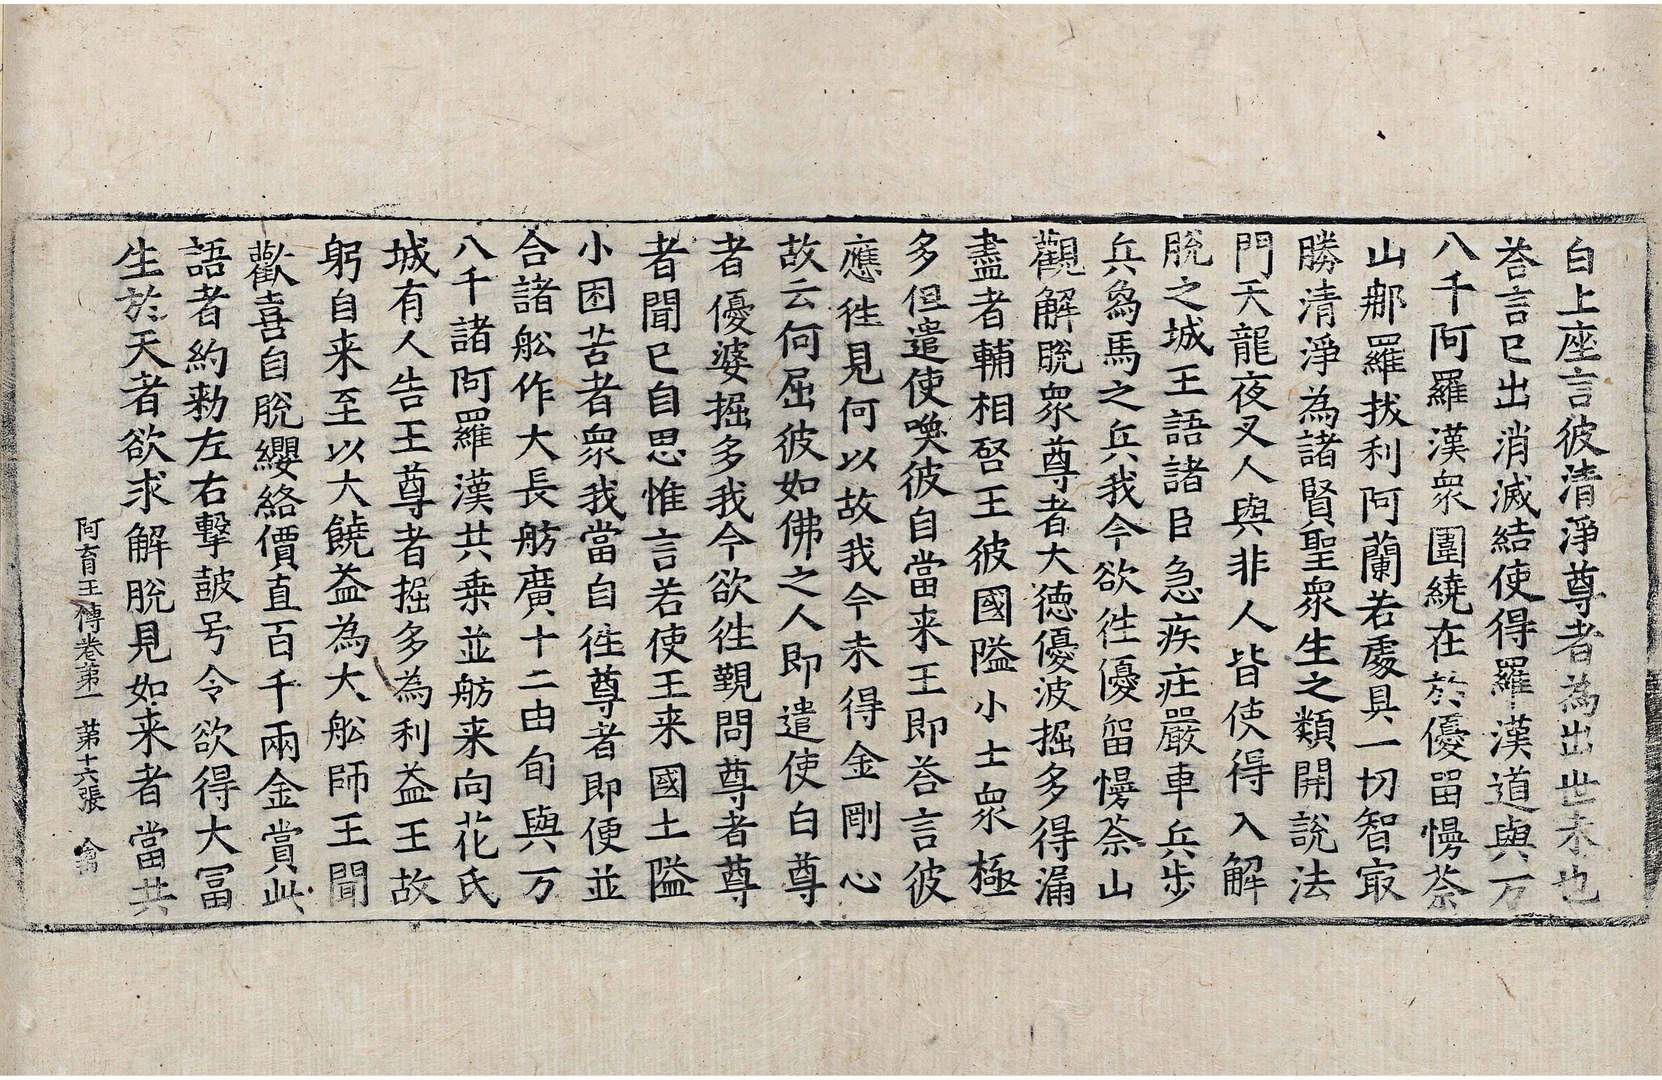 白上座言彼清淨尊者為出世未也
荅言已出消滅結使得羅漢道與万
八千阿羅漢衆圍繞在於優留慢荼
山郍羅拔利阿蘭若處具一切智㝡
勝清淨為諸賢聖衆生之類開說法
門天龍夜叉人與非人皆使得入解
脫之城王語諸臣急疾庄嚴車兵步
兵爲馬之兵我今欲徃優留慢荼山
觀解脫衆尊者大德優波掘多得漏
盡者輔相啓王彼國隘小士衆極
多但遣使喚彼自當来王即荅言彼
應徃見何以故我今未得金剛心
故云何屈彼如佛之人即遣使白尊
者優婆掘多我今欲徃覲問尊者尊
者聞已自思惟言若使王来國土隘
小困苦者衆我當自徃尊者即便並
合諸舩作大長舫廣十二由旬與万
八千諸阿羅漢共乗並舫来向花氏
城有人告王尊者掘多為利益王故
躬自来至以大饒益為大舩師王聞
歡喜自脫纓絡價直百千兩金賞此
語者約勑左右擊皷号令欲得大冨
生於天者欲求解脫見如来者當共
阿育王傳卷第一　第十六張　禽